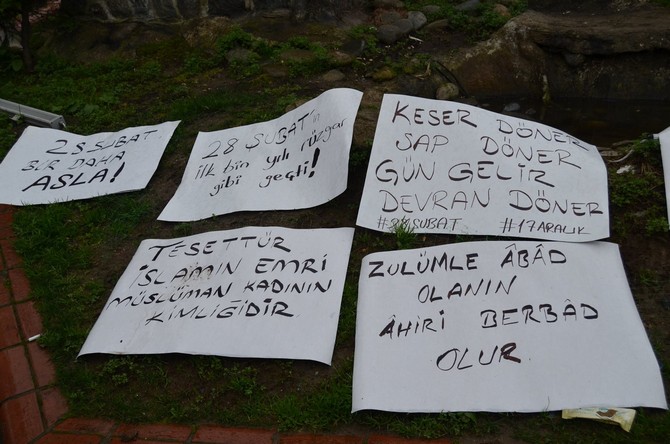 28 ŞUBAT
BİR DAHA
ASLA!
28 ŞUBAT'ın
ilk bin yılı rüzgar
gibi geçti!
KESER DÖNER
SAP DÖNER
GÜN GELİR
DEVRAN DÖNER
#28ŞUBAT #17ARALIK
TESETTÜR
İSLAMIN EMRİ
MÜSLÜMAN KADININ
KİMLİĞİDİR.
ZULÜMLE ÂBÂD
OLANIN
ÂHİRİ BERBÂD
OLUR.